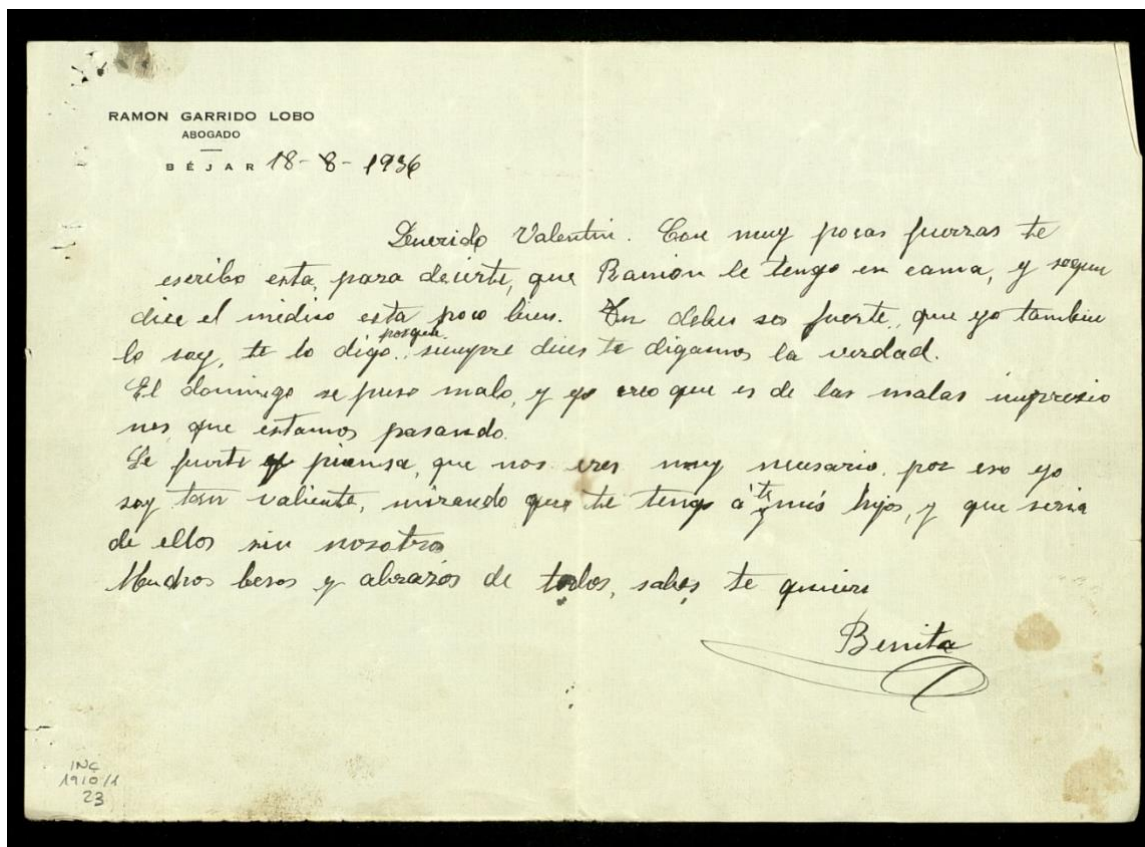 RAMON GARRIDO LOBO
ABOGADO
BÉJAR 18-8-1936
Querido Valentin. Con muy pocas fuerzas te
escribo esta, para decirte, que Ramón le tengo en cama, y segun
dice el médico esta poco bien. Tu debes ser fuerte, que yo tambien
lo soy, te lo digo porque siempre dices te digamos la verdad.
El domingo se puso malo, y yo creo que es de las malas impresio
nes, que estamos pasando.
Se fuerte y piensa, que nos eres muy necesario. por eso yo
soy tan valiente, mirando que te tengo á ti y mis hijos, y que seria
de ellos sin nosotros
Muchos besos y abrazos de todos, sabes te quiere
Benita
INC
1910/1
23